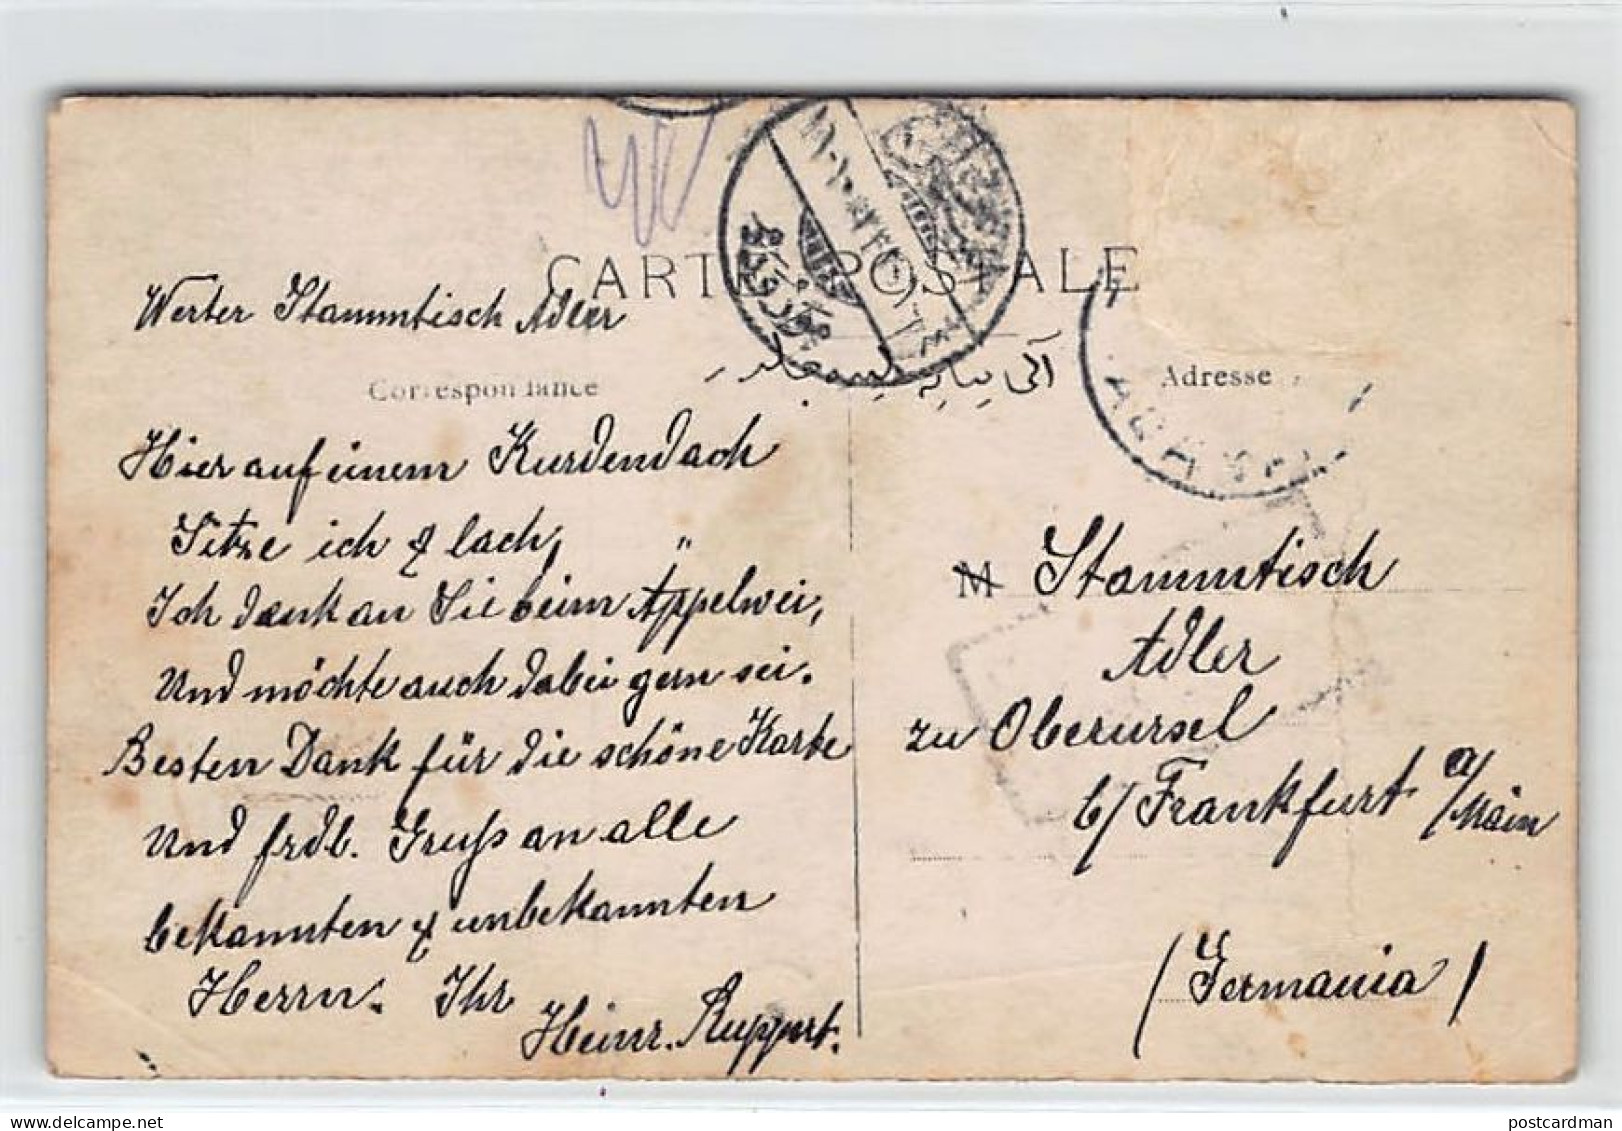 CARTE POSTALE
Werter Stammtisch Adler
Correspondance
Adresse
Hier auf einem Kurdendach
Sitze ich & lach,
Ich denk an Sie beim Äppelwei,
Und möchte auch dabei gern sei.
Besten Dank für die schöne Karte
Und frdl. Gruß an alle
bekannten & unbekannten
Herrn. Ihr
Heinr. Ruppert.
M Stammtisch
Adler
zu Oberursel
b/ Frankfurt a/Main
(Germania)
postcardman